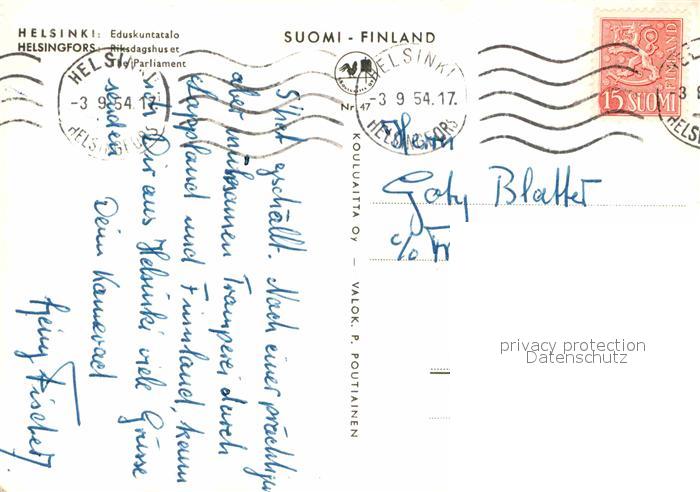 HELSINKI: Eduskuntatalo
HELSINGFORS: Riksdagshuset
The Parliament
SUOMI - FINLAND
HELSINKI
-3 9.54.17.
HELSINGFORS
HELSINKI
-3 9 54.17.
HELSINGFORS
15 SUOMI
FINLAND
Nr. 47
KOULUAITTA Oy — VALOK. P. POUTIAINEN
S'het gschällt. Nach einer prächtigen
aber mühsamen Tramperei durch
Lappland und Finnland, kann
ich Dir aus Helsinki viele Grüsse
senden
Dein Kamerad
Heiny Fischer
Herrn
Gody Blatter
c/o Fr
privacy protection
Datenschutz